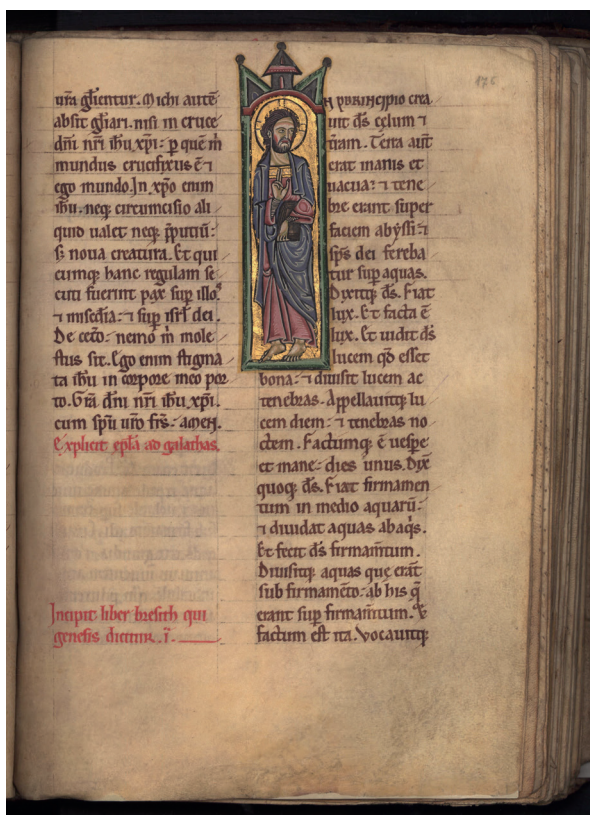 ura gl̄ientur. Michi autē
absit gl̄iari. nisi in cruce
dn̄i nr̄i ih̄u xp̄i: ꝑ quē m̄
mundus crucifixus ē ⁊
ego mundo. In xp̄o enim
ih̄u. neqꝫ circumcisio ali
quid ualet neqꝫ p̄putiū:
sꝫ noua creatura. Et qui
cumqꝫ hanc regulam se
cuti fuerint pax suꝑ illoꝰ
⁊ mis̄c̄dia: ⁊ suꝑ isrl̄ dei.
De cet̄o: nemo m̄ mole
stus sit. Ego enim stigma
ta ih̄u in corpore meo por
to. Gr̄a dn̄i nr̄i ih̄u xp̄i.
cum sp̄u ur̄o fr̄s: amen.
Explicit epl̄a ad galathas.
Incipit liber bresith qui
genesis dicitur. i.
N PRINCIPIO crea
uit d̄s celum ⁊
t̄ram. Terra aūt
erat inanis et
uacua: ⁊ tene
bre erant super
faciem abyssi: ⁊
sp̄s dei fereba
tur suꝑ aquas.
Dixitqꝫ d̄s. Fiat
lux. Et facta ē
lux. Et uidit d̄s
lucem qd̄ esset
bona: ⁊ diuisit lucem ac
tenebras. Appellauitqꝫ lu
cem diem: ⁊ tenebras no
ctem. Factumqꝫ ē uesꝑe
et mane: dies unus. Dix̄
quoqꝫ d̄s. Fiat firmamen
tum in medio aquarū:
⁊ diuidat aquas abaq̄s.
Et fecit d̄s firmam̄tum.
Diuisitqꝫ aquas que erāt
sub firmamēto: ab his q̄
erant suꝑ firmam̄tum.
factum est ita. Vocauitqꝫ